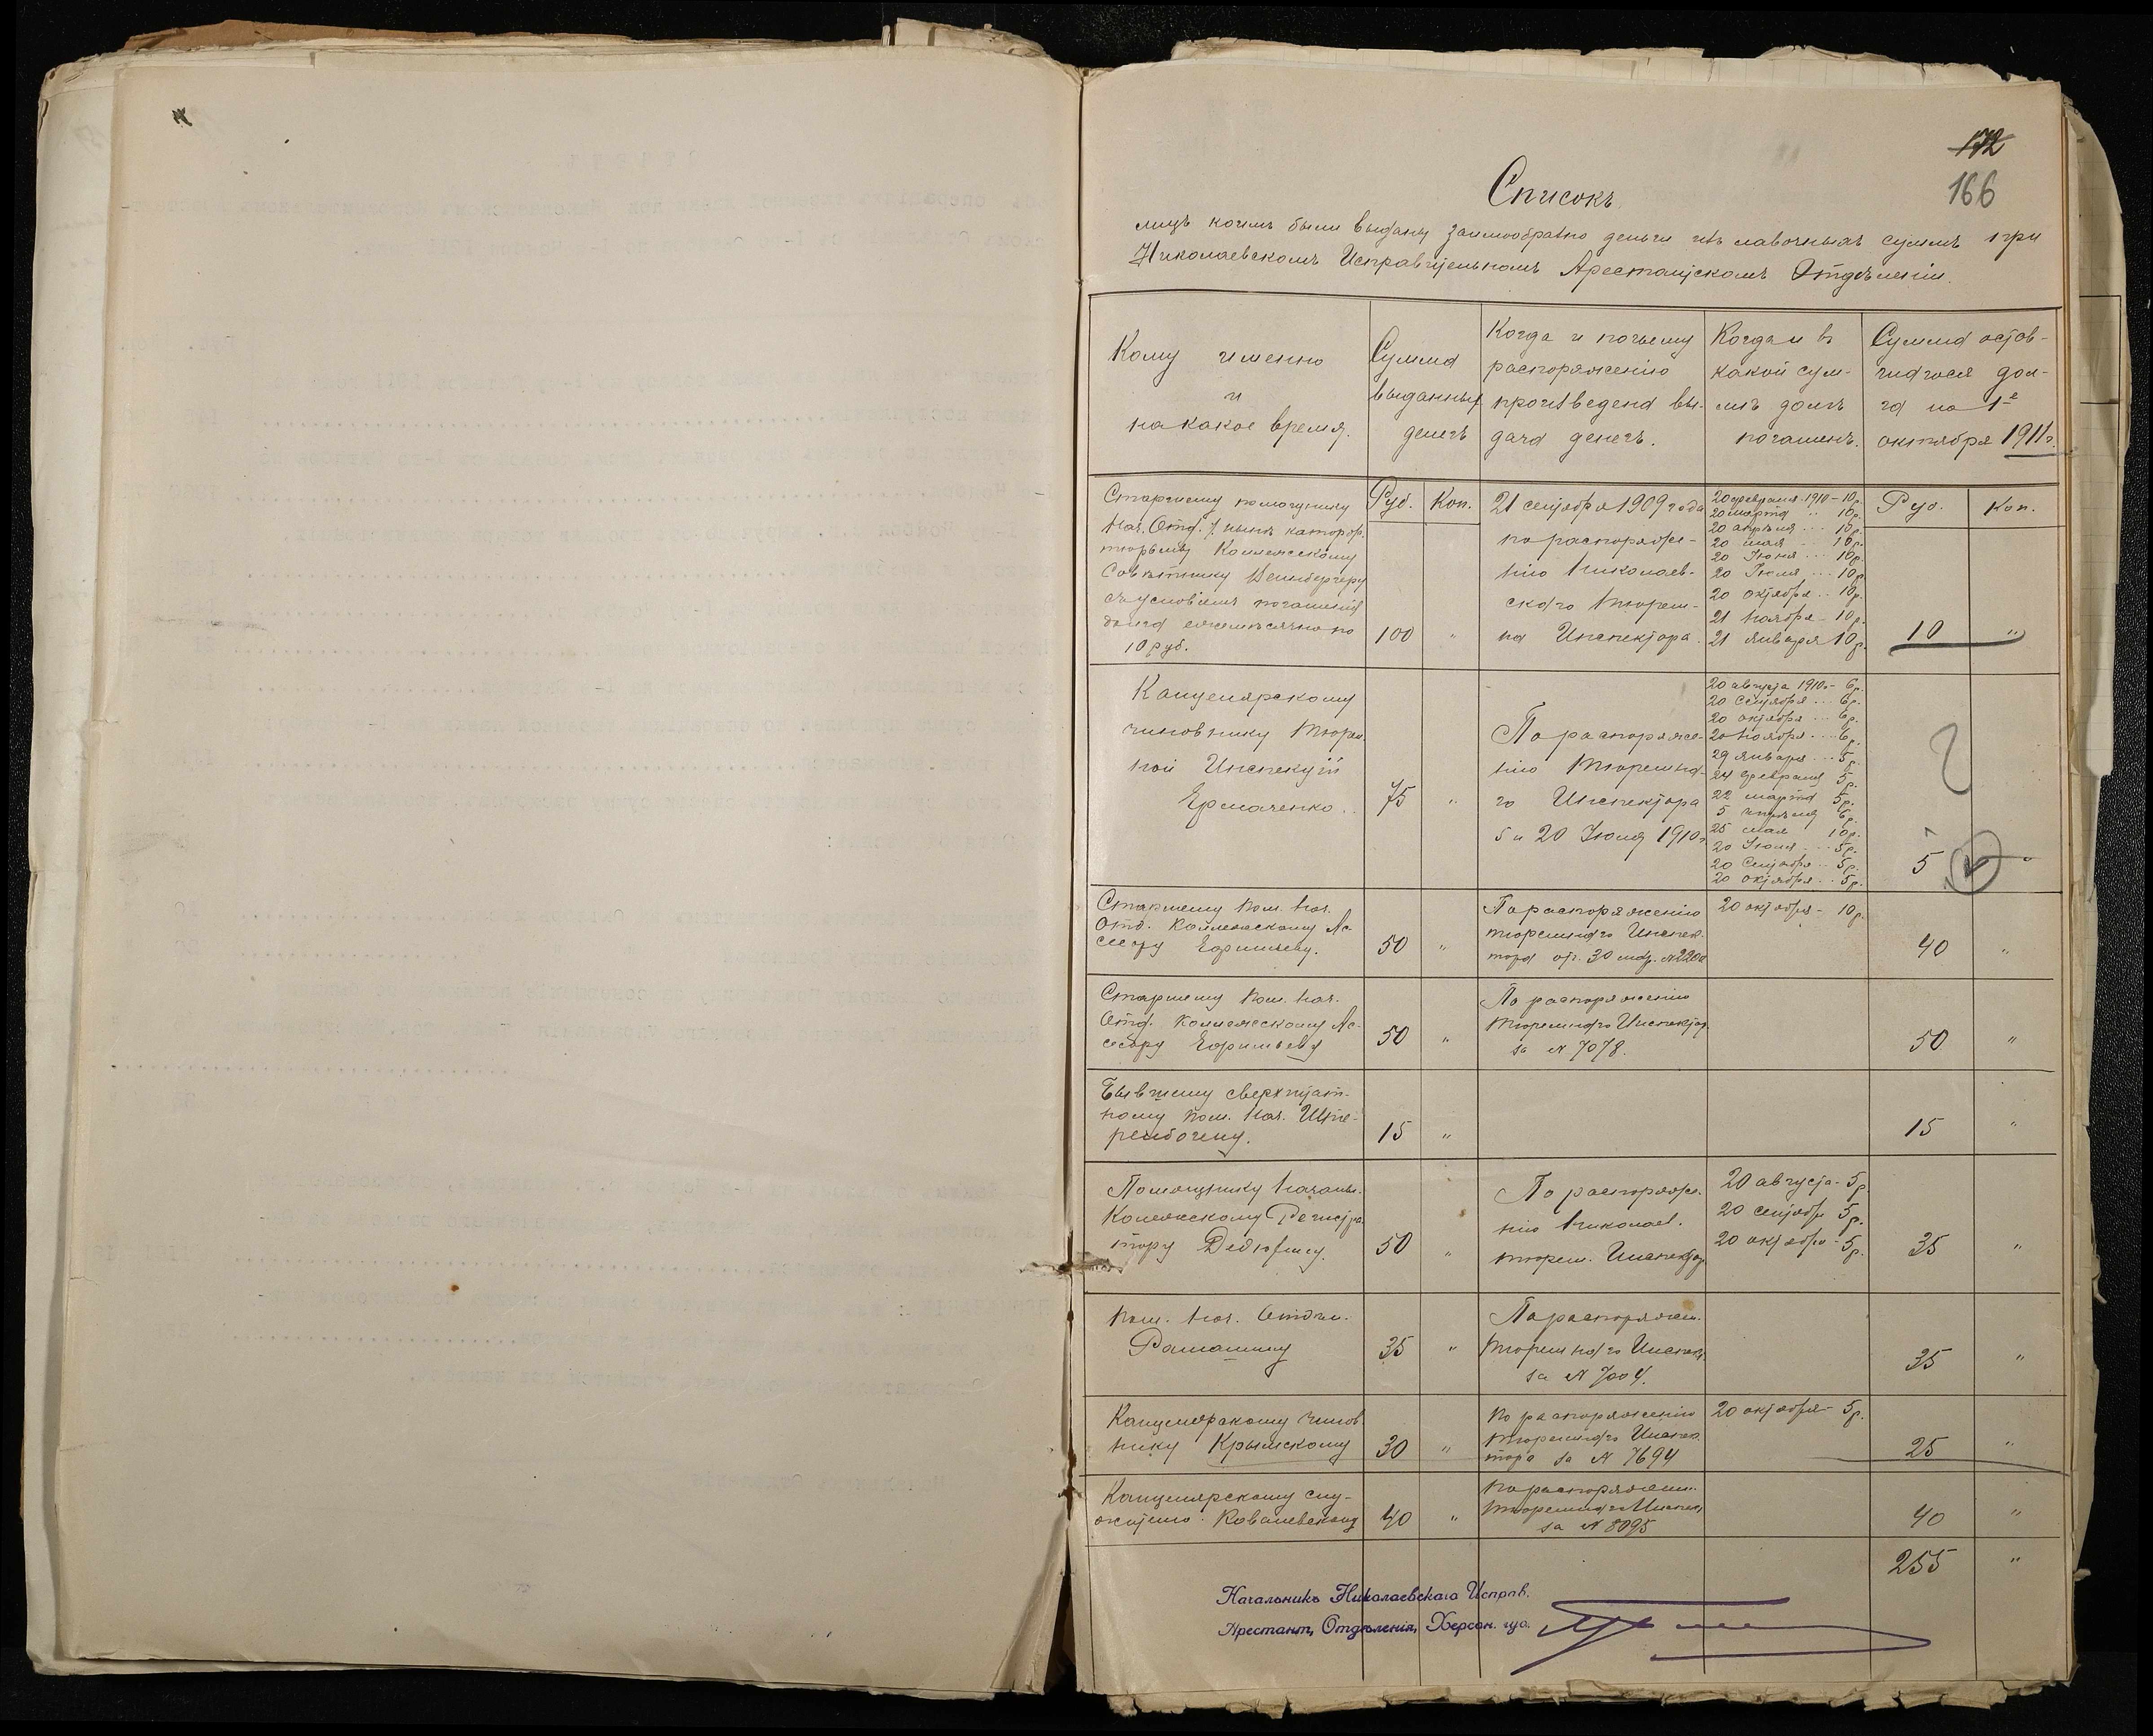 172
166
Списокъ
лицъ коимъ были выданы заимообратно деньги изъ лавочныхъ суммъ при
Николаевскомъ Исправительномъ Арестантскомъ Отдѣленіи.
Кому именно
и
на какое время.
Сумма
выданных
денегъ
Когда и почьему
распоряженію
произведена вы-
дача денегъ.
Когда и въ
какой сум-
мѣ долгъ
погашенъ.
Сумма остав-
шагося дол-
га на 1е
октября 1911г.
Руб. Коп.
Руб. Коп.
Старшему помощнику
Нач. Отд.
тюрьмы Коллежскому
Совѣтнику Вейнбергеру
съ условіемъ погашенія
долга ежемѣсячно по
10 руб.
100 "
21 сентября 1909 года
по распоряже-
нію Николаев-
скаго Тюрем-
на Инспектора.
20 февраля 1910 - 10р.
20 марта .. 10р.
20 апрѣля ... 10р.
20 мая ... 10р.
20 Іюня ... 10р.
20 Іюля ... 10р.
20 октября .. 10р.
21 ноября - 10р.
21 января 10р.
10 "
Канцелярскому
чиновнику Тюрем
ной Инспекціи
Ермаченко..
75 "
По распоряже-
нію Тюремна-
го Инспектора
5 и 20 Іюля 1910г
20 августа 1910г - 6р.
20 сентября ... 6р.
20 октября ... 6р.
20 ноября ... 6р.
29 января ... 5р.
24 февраля 5р.
22 марта 5р.
5 апрѣля 6р.
25 мая 10р.
20 Іюля ... 5р.
20 Сентября .. 5р.
20 октября .. 5р.
5 "
Старшему пом. Нач.
Отд. Коллежскому Ас
сесору Ефимьеву.
50 "
По распоряженію
тюремнаго Инспек.
тора от. 30
20 октября - 10р.
40 "
Старшему пом. Нач.
Отд. Коллежскому Ас-
сесору Ефимьеву
50 "
По распоряженію
Тюремнаго Инспектор
за № 7078.
50 "
Бывшему сверхштат-
ному пом. Нач.
15 "
15 "
Помощнику Началь.
Коллежскому Регистра
тору
50 "
По распоряже-
нію Николаев.
тюрем. Инспектор
20 августа - 5р.
20 сентябр 5р.
20 октября - 5р.
35 "
Пом. Нач. Отдѣл.
Ромашину
35 "
По распоряжен.
Тюремнаго Инспек.
за № 7004.
35 "
Канцелярскому чинов
нику Крымскому
30 "
По распоряженію
Тюремнаго Инспек.
тора за № 7694
20 октября - 5р.
25 "
Канцелярскому слу-
жителю Ковалевскому
40 "
По распоряжен.
Тюремнаго Инспек.
за № 8095
40 "
255 "
Начальникъ Николаевскаго Исправ.
Арестант. Отдѣленія, Херсон. губ.